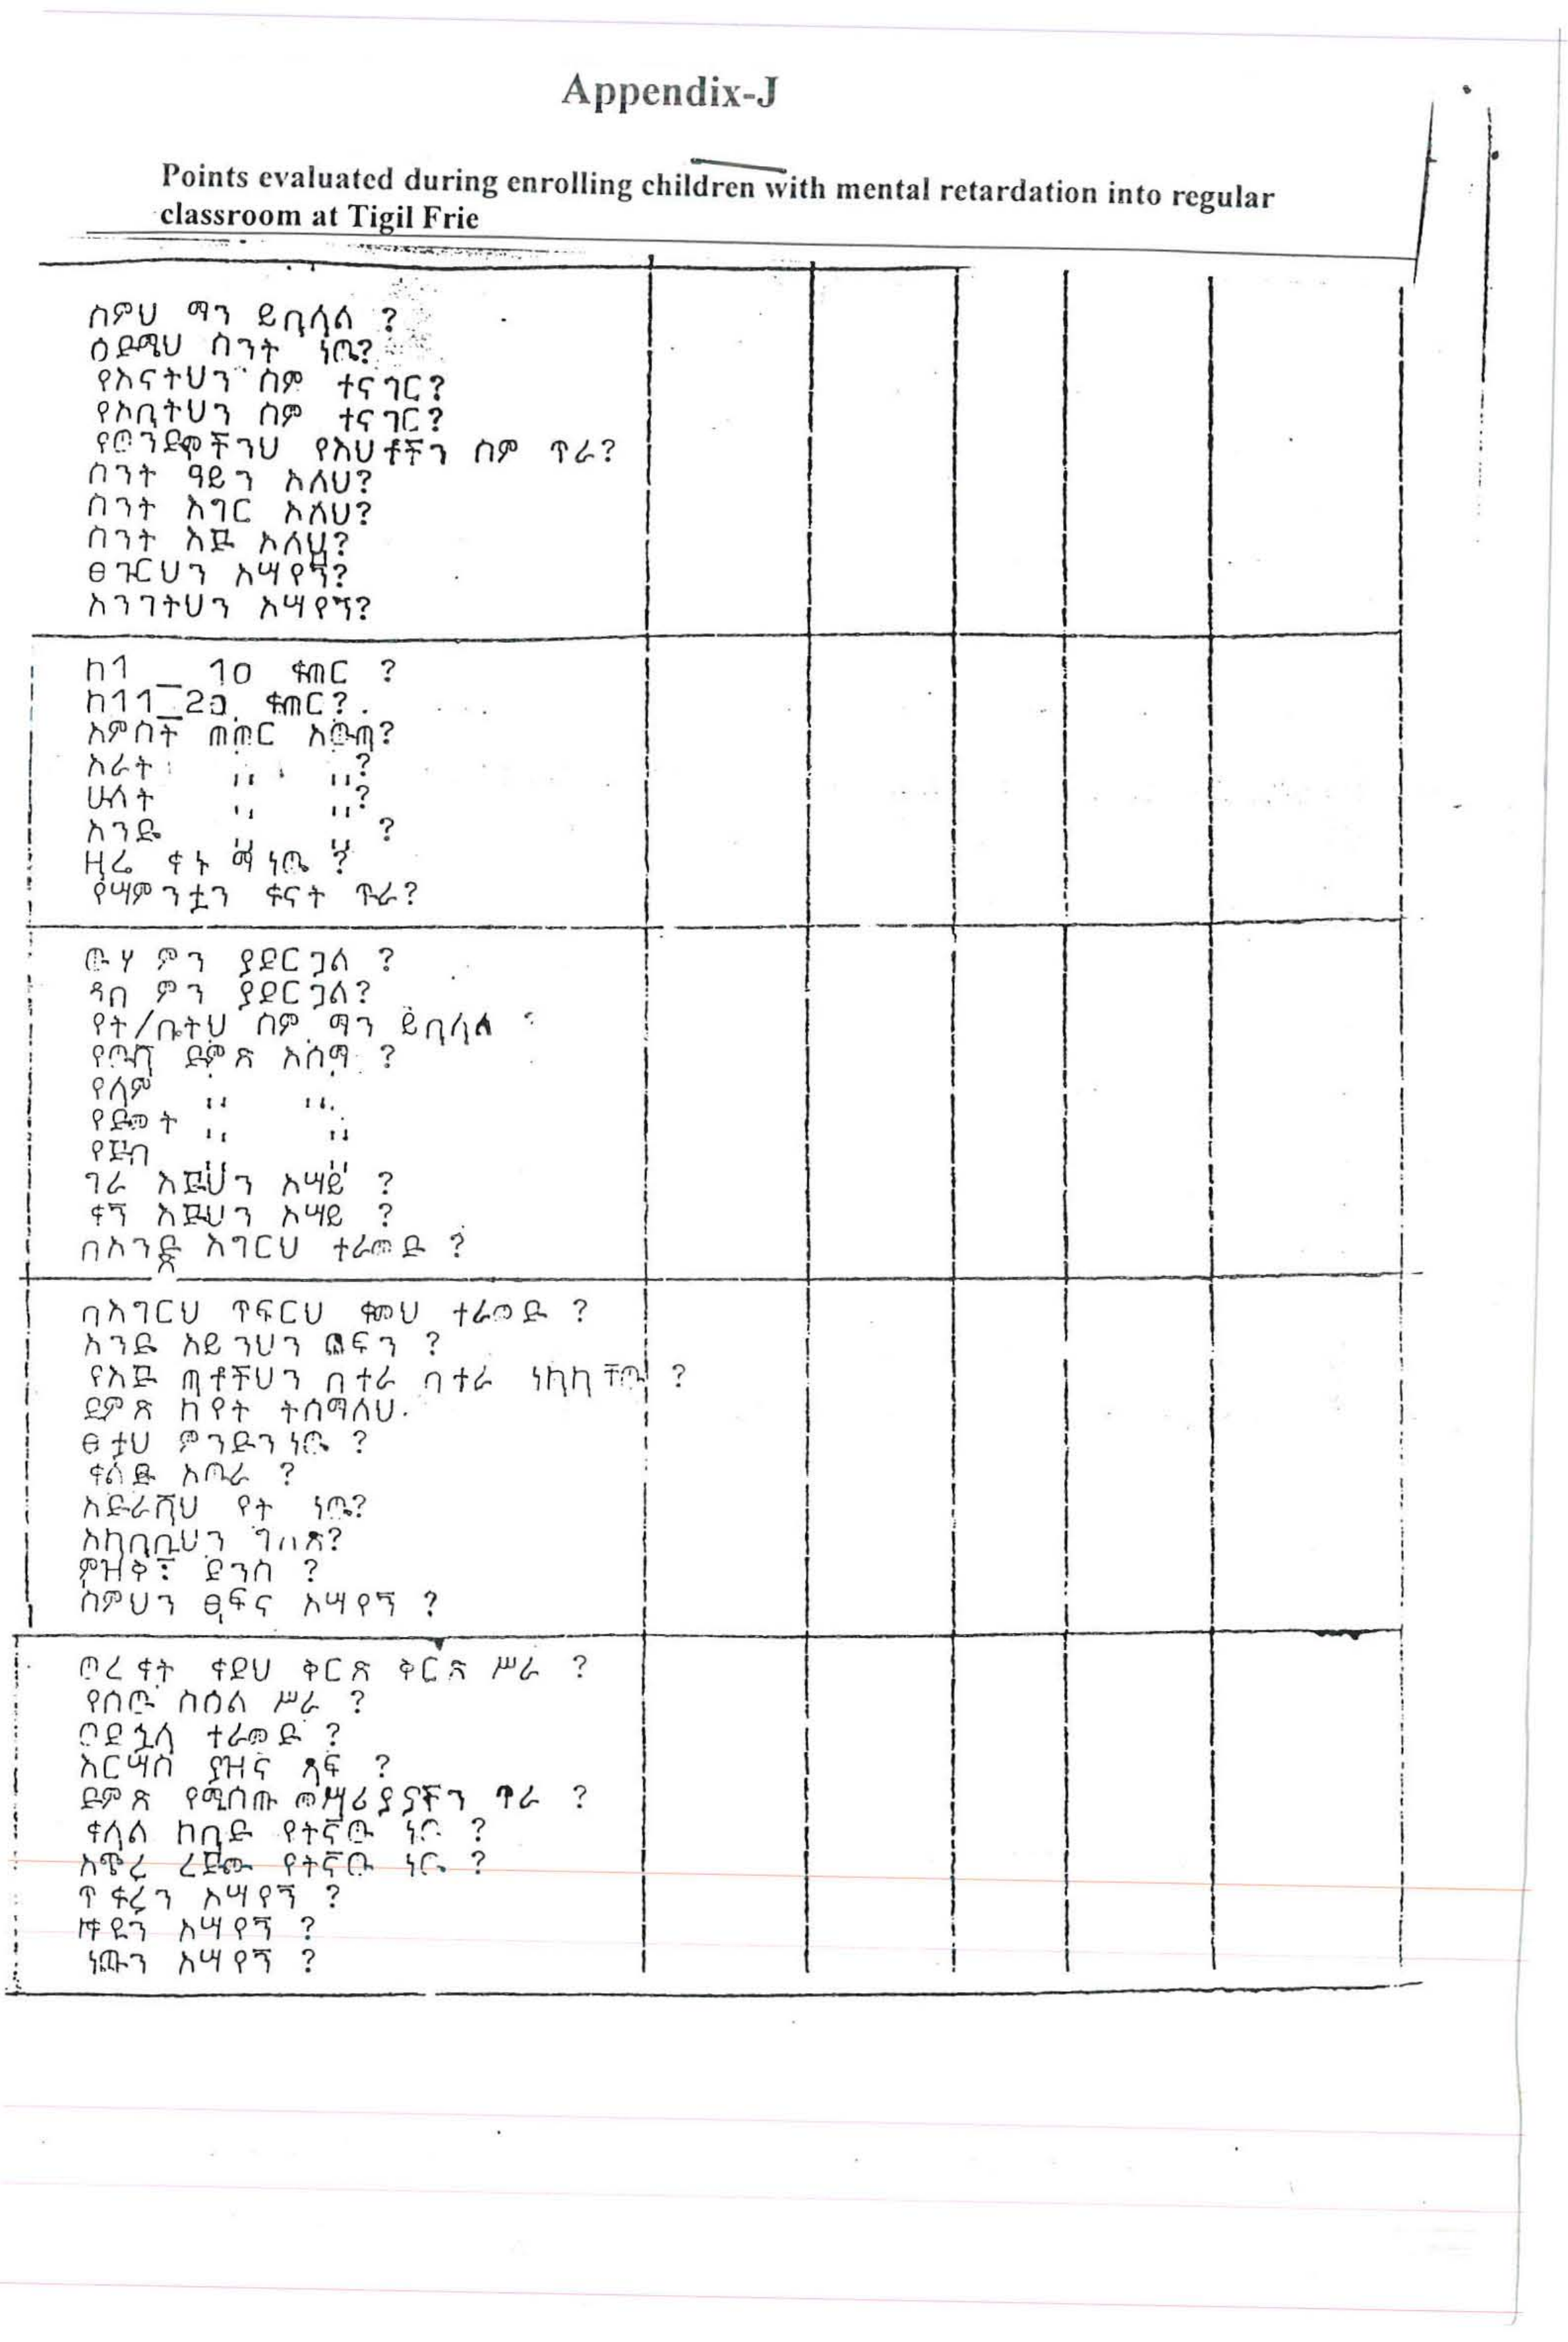 Appendix-J
Points evaluated during enrolling children with mental retardation into regular
classroom at Tigil Frie
ስምህ ማን ይባላል ?
ዕድሜህ ስንት ነዉ?
የእናትህን ስም ተናገር?
የአባትህን ስም ተናገር?
የወንድሞችንህ የእህቶችን ስም ጥራ?
ስንት ዓይን አለህ?
ስንት እግር አለህ?
ስንት እጅ አለህ?
ፀጉርህን አሣየኝ?
አንገትህን አሣየኝ?
ከ1 _ 10 ቁጠር ?
ከ11_20 ቁጠር?
አምስት ጠጠር አዉጣ?
አራት ,, ,,?
ሁለት ,, ,,?
አንድ ,, ,, ?
ዛሬ ቀኑ ማ ነዉ ?
የሣምንቷን ቀናት ጥራ?
ዉሃ ምን ያደርጋል ?
ዳቦ ምን ያደርጋል?
የት/ቤትህ ስም ማን ይባላል
የዉሻ ድምጽ አሰማ ?
የላም ,, ,,
የድመት ,, ,,
የጅብ ,, ,,
ግራ እጅህን አሣይ ?
ቀኝ እጅህን አሣይ ?
በአንድ እግርህ ተራመድ ?
በእግርህ ጥፍርህ ቁመህ ተራመድ ?
አንድ አይንህን ጨፍን ?
የእጅ ጣቶችህን በተራ በተራ ነካካቸዉ ?
ድምጽ ከየት ትሰማለህ.
ፆታህ ምንድን ነዉ ?
ቀልድ አዉራ ?
አድራሻህ የት ነዉ?
አከባቢህን ግለጽ?
ምዝቅ፣ ደንስ ?
ስምህን ፀፍና አሣየኝ ?
ወረቀት ቀደህ ቅርጽ ቅርጽ ሥራ ?
የሰዉ ስዕል ሥራ ?
ወደኋላ ተራመድ ?
እርሣስ ያዝና ጻፍ ?
ድምጽ የሚሰጡ መሣሪያያችን ጥራ ?
ቀላል ከባድ የትኛዉ ነዉ ?
አጭረ ረጅሙ የትኛዉ ነዉ ?
ጥቁረን አሣየኝ ?
ቀዩን አሣየኝ ?
ነጩን አሣየኝ ?